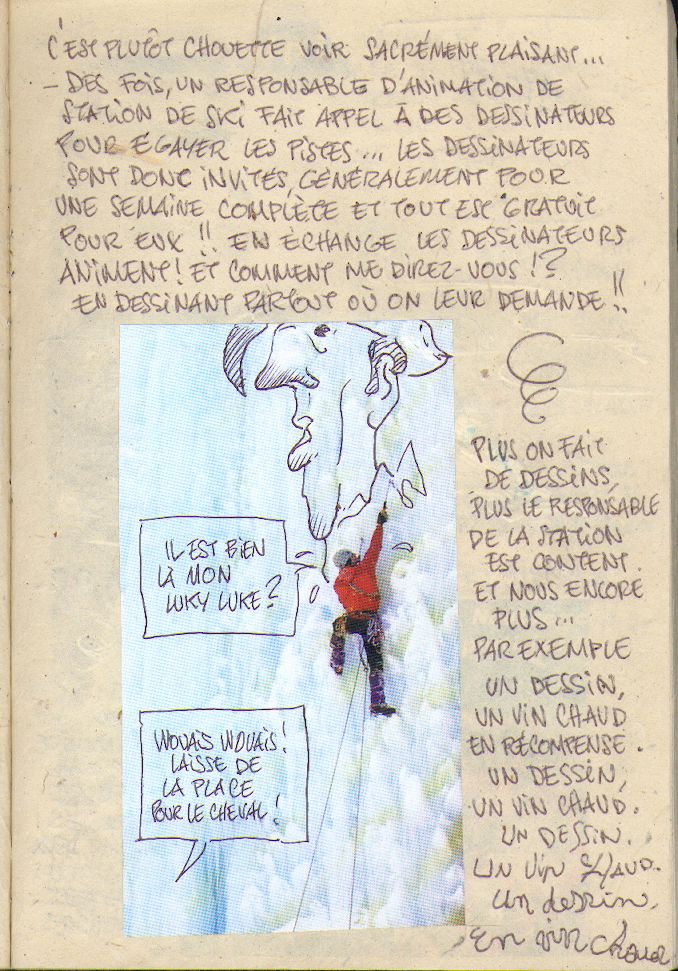 C'EST PLUTÔT CHOUETTE VOIR SACRÉMENT PLAISANT...
- DES FOIS, UN RESPONSABLE D'ANIMATION DE
STATION DE SKI FAIT APPEL À DES DESSINATEURS
POUR ÉGAYER LES PISTES... LES DESSINATEURS
SONT DONC INVITÉS, GÉNÉRALEMENT POUR
UNE SEMAINE COMPLÈTE ET TOUT EST GRATUIT
POUR EUX!! EN ÉCHANGE LES DESSINATEURS
ANIMENT! ET COMMENT ME DIREZ-VOUS!?
EN DESSINANT PARTOUT OÙ ON LEUR DEMANDE!!
PLUS ON FAIT
DE DESSINS,
PLUS LE RESPONSABLE
DE LA STATION
EST CONTENT.
ET NOUS ENCORE
PLUS...
PAR EXEMPLE
UN DESSIN,
UN VIN CHAUD
EN RÉCOMPENSE.
UN DESSIN,
UN VIN CHAUD.
UN DESSIN.
UN VIN CHAUD.
Un dessin.
En vin chaud
IL EST BIEN
LÀ MON
LUKY LUKE?
WOUAIS WOUAIS!
LAISSE DE
LA PLACE
POUR LE CHEVAL!